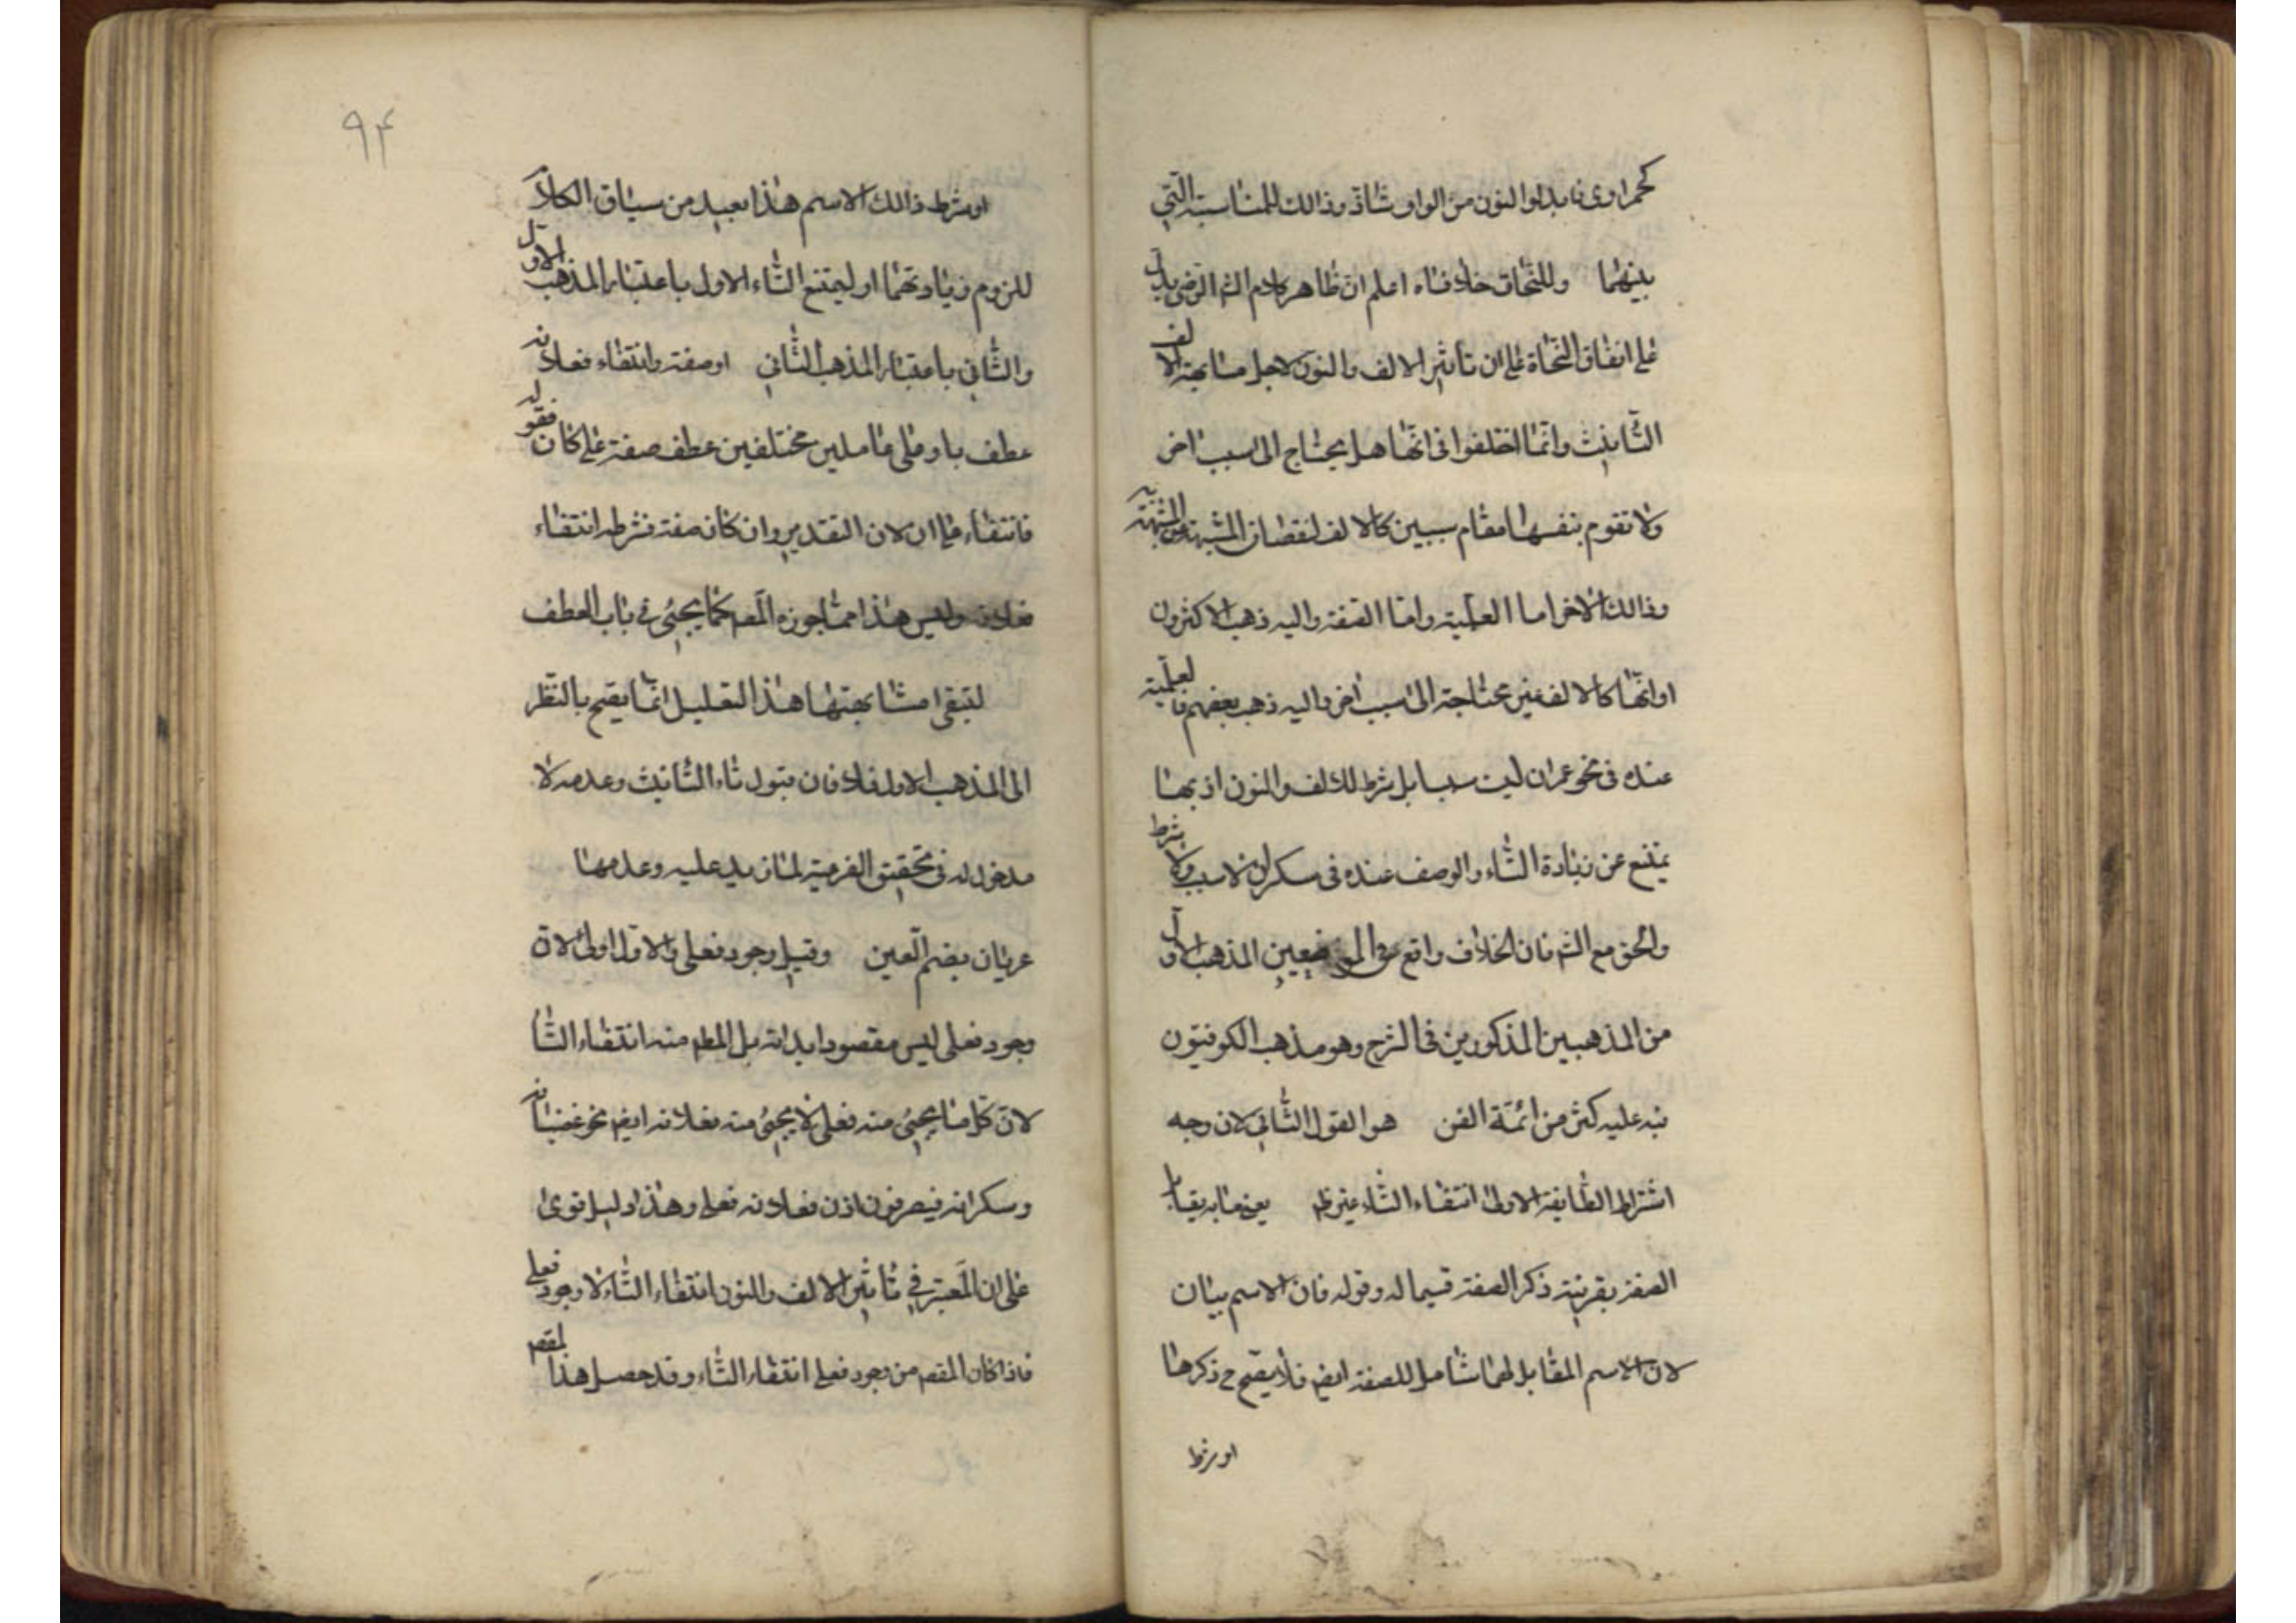 كحمراوى فابدلوا النون من الواو شاذ وذالك للمناسبة التي
بينهما وللنحاة خلافاه اعلم ان ظاهر كلام الشم الرضى يدل
على اتفاق النحاة على ان تأثير الالف والنون لاجل مشابهة الالف
التأنيث وانما اختلفوا فى انها هل يحتاج الى سبب اخر
ولا تقوم بنفسها مقام سببين كالالف لنقصان المشبه عن المشبه به
وذالك الاخر اما العلمية واما الصفة واليه ذهب الاكثرون
او انها كالالف غير محتاجة الى سبب اخر واليه ذهب بعضهم فالعلمية
عنده فى نحو عمران ليت سببا بل شرط للالف والنون اذ بها
يمتنع عن زيادة التاء والوصف عنده فى سكران لا سبب ولا شرط
والحق مع الشم فان الخلاف واقع فى الموضعين المذهب الاول
من المذهبين المذكورين فى الشرح وهو مذهب الكوفيون
نبه عليه كثر من ائمة الفن هو القول الثاني لان وجه
اشتراط الطايفة الاولى انتفاء التاء غير ظ يعنى ما به يقابل
الصفة بقرينة ذكر الصفة قسيما له وقوله فان الاسم بيان
لان الاسم المقابل لهما شامل للصفة ايضم فلا يصح ح ذكرها
او شرط
۹۴
او شرط ذالك الاسم هذا بعيد من سياق الكلام
للزوم زيادتهما او ليمتنع التاء الاول باعتبار المذهب الاول
والثاني باعتبار المذهب الثاني او صفة وانتفاء فعلانه
عطف باو على عاملين مختلفين عطف صفة على كان فقوله
فانتفاء على ان لان التقدير وان كانه صفة فشرطه انتفاء
فعلانه وليس هذا مما جوزه المصم كما يجئ فى باب العطف
لتبقى مشابهتها هذا التعليل انما يصح بالنظر
الى المذهب الاول فلا فان قبول تاء التأنيث وعدمه لا
مدخول له فى تحقيق الفرعية لما زيد عليه وعدمها
عريان بضم العين وقيل وجود فعلى والاول اولى لان
وجود فعلى ليس مقصودا بذاته بل المط منه انتفاء التاء
لان كل ما يجئ منه فعلى لا يجئ منه فعلانه ايضم نحو غضبانه
وسكرانه فيصرفون اذن فعلانه فعلى وهذا دليل قوى
على ان المعتبر في تأثير الالف والنون انتفاء التاء لا وجود فعلى
فاذا كان المقصم من وجود فعلى انتفاء التاء وقد حصل هذا المقصم